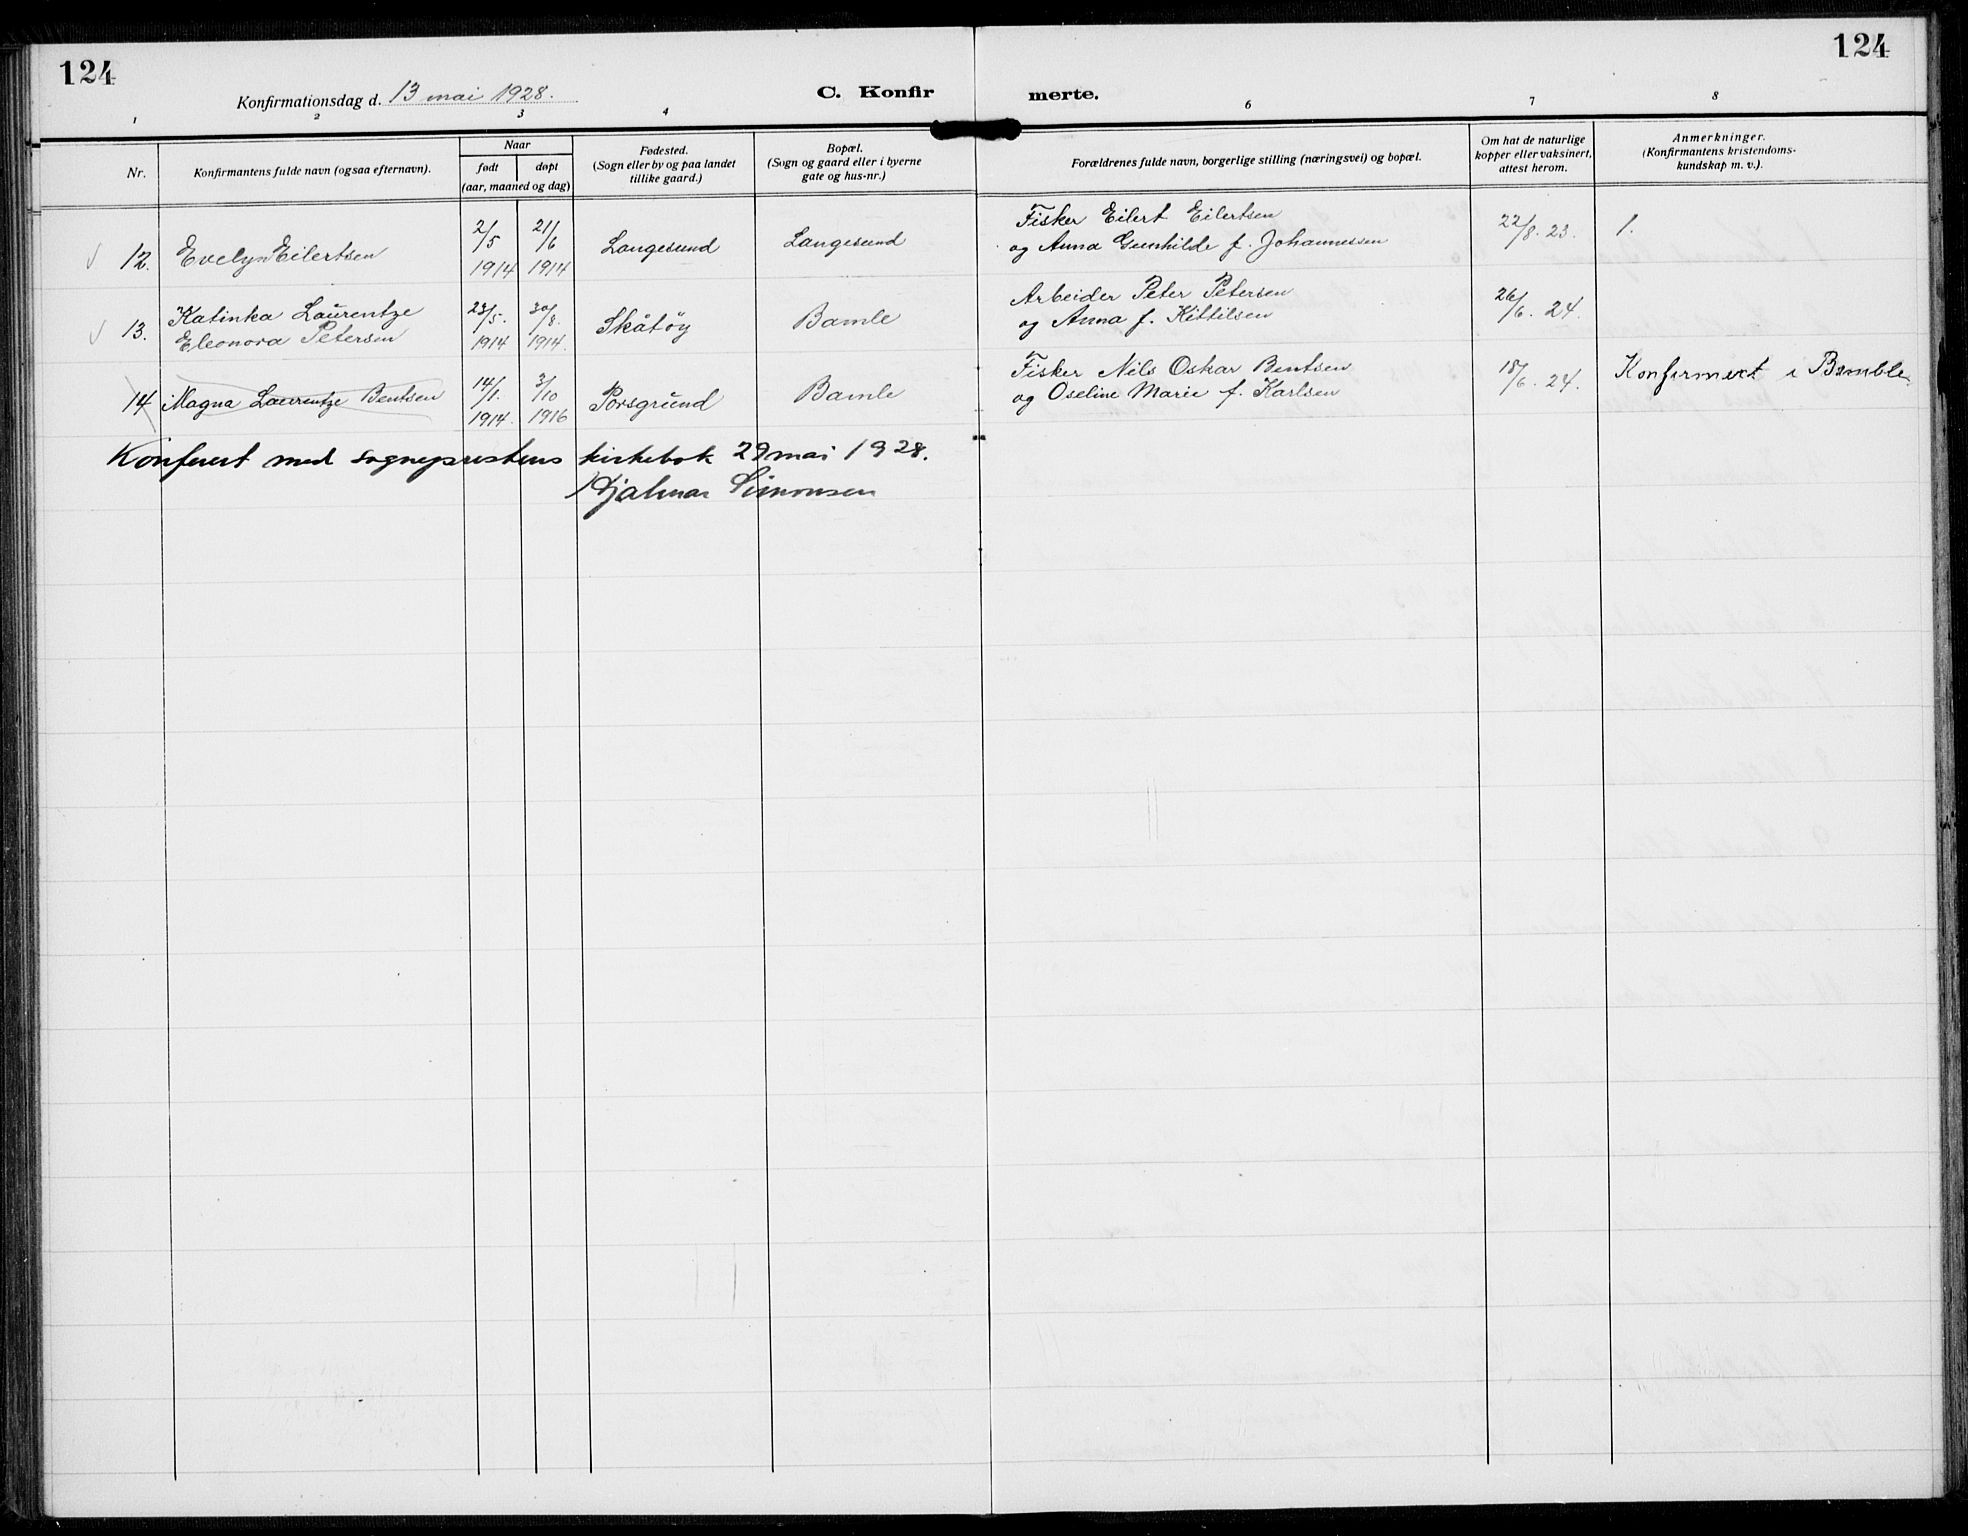 124
124
Konfirmationsdag d. 13 mai 1928.
C. Konfir
merte.
1 2 3 4 6 7 8
Nr.
Konfirmantens fulde navn (ogsaa efternavn).
Naar
født døpt
(aar, maaned og dag)
Fødested.
(Sogn eller by og paa landet
tillike gaard.)
Bopæl.
(Sogn og gaard eller i byerne
gate og hus-nr.)
Forældrenes fulde navn, borgerlige stilling (næringsvei) og bopæl.
Om hat de naturlige
kopper eller vaksinert,
attest herom.
Anmerkninger.
(Konfirmantens kristendoms-
kundskap m. v.).
12. Evelyn Eilertsen
2/5 1914
21/6 1914
Langesund
Langesund
Fisker Eilert Eilertsen
og Anna Gunhilde f. Johannessen
22/8. 23.
1.
13. Katinka Laurentze
Eleonora Petersen
23/5. 1914
30/8. 1914.
Skåtøy
Bamle
Arbeider Peter Petersen
og Anna f. Kittilsen
26/6. 24.
14 Magna Laurentze Bentsen
14/1. 1914.
3/10 1916
Porsgrund
Bamle
Fisker Nils Oskar Bentsen
og Oseline Marie f. Karlsen
18/6. 24.
Konfirmert i Bamble
Konferert med sogneprestens kirkebok 29 mai 1928.
Hjalmar Simonsen